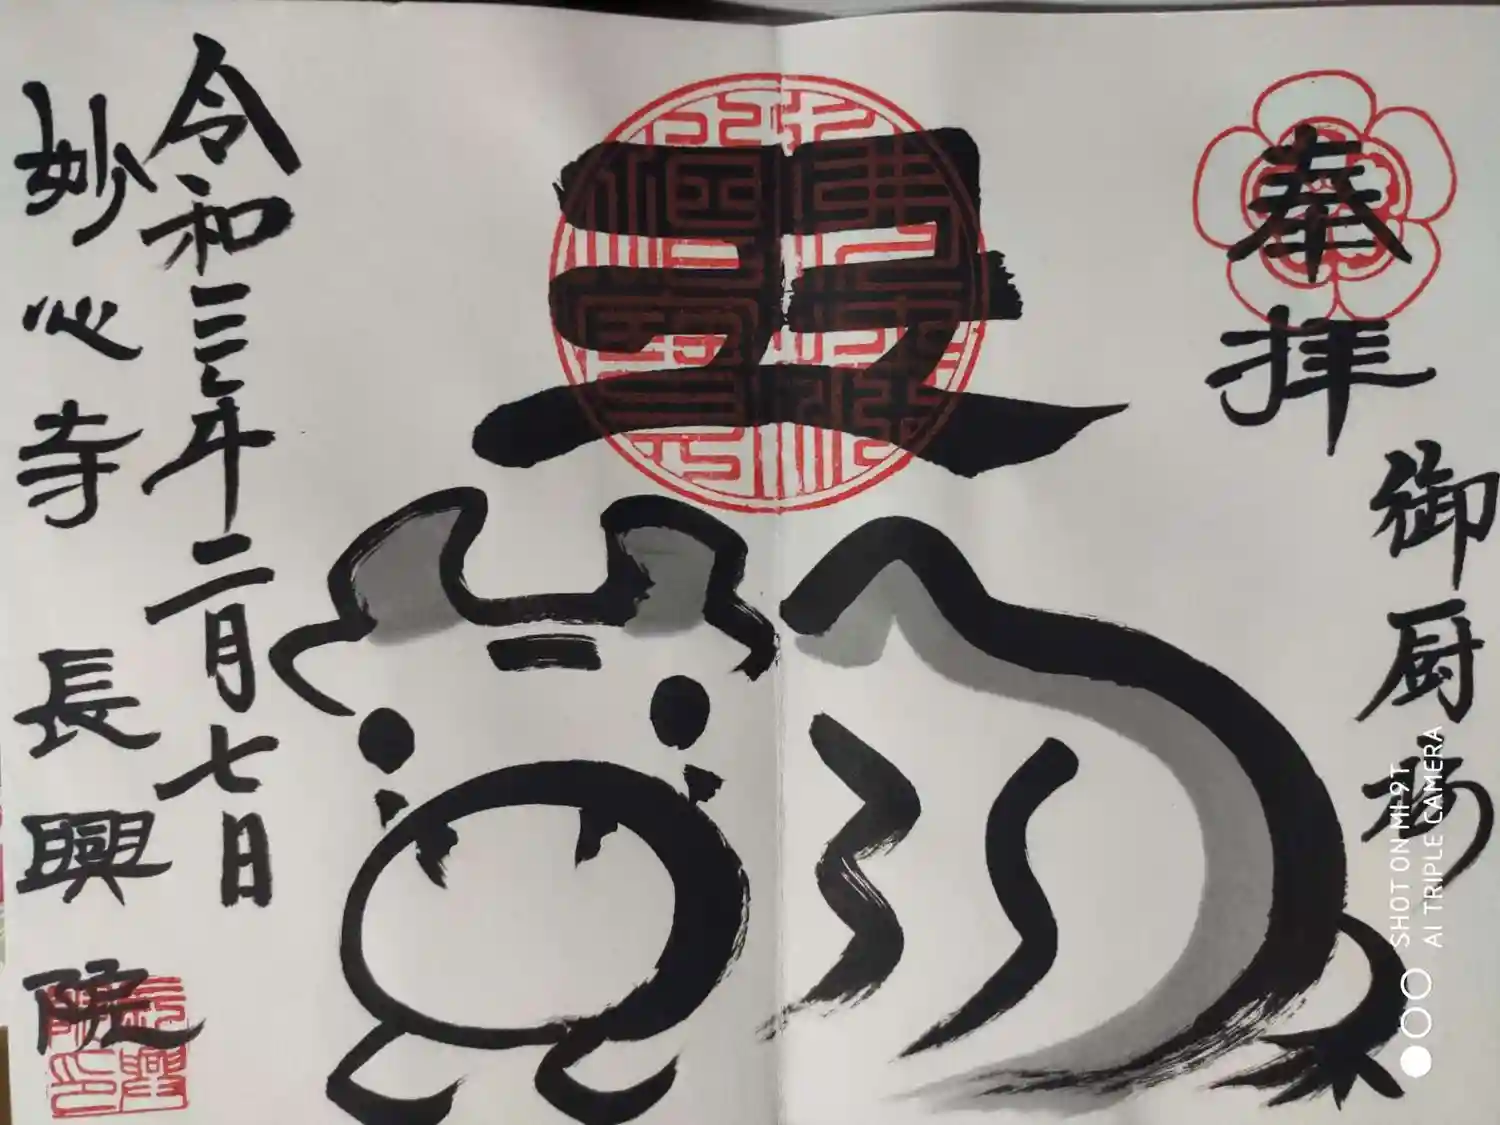 奉拝
御厨
丑
令和三年二月七日
妙心寺 長興院
SHOT ON MI 9T
AI TRIPLE CAMERA